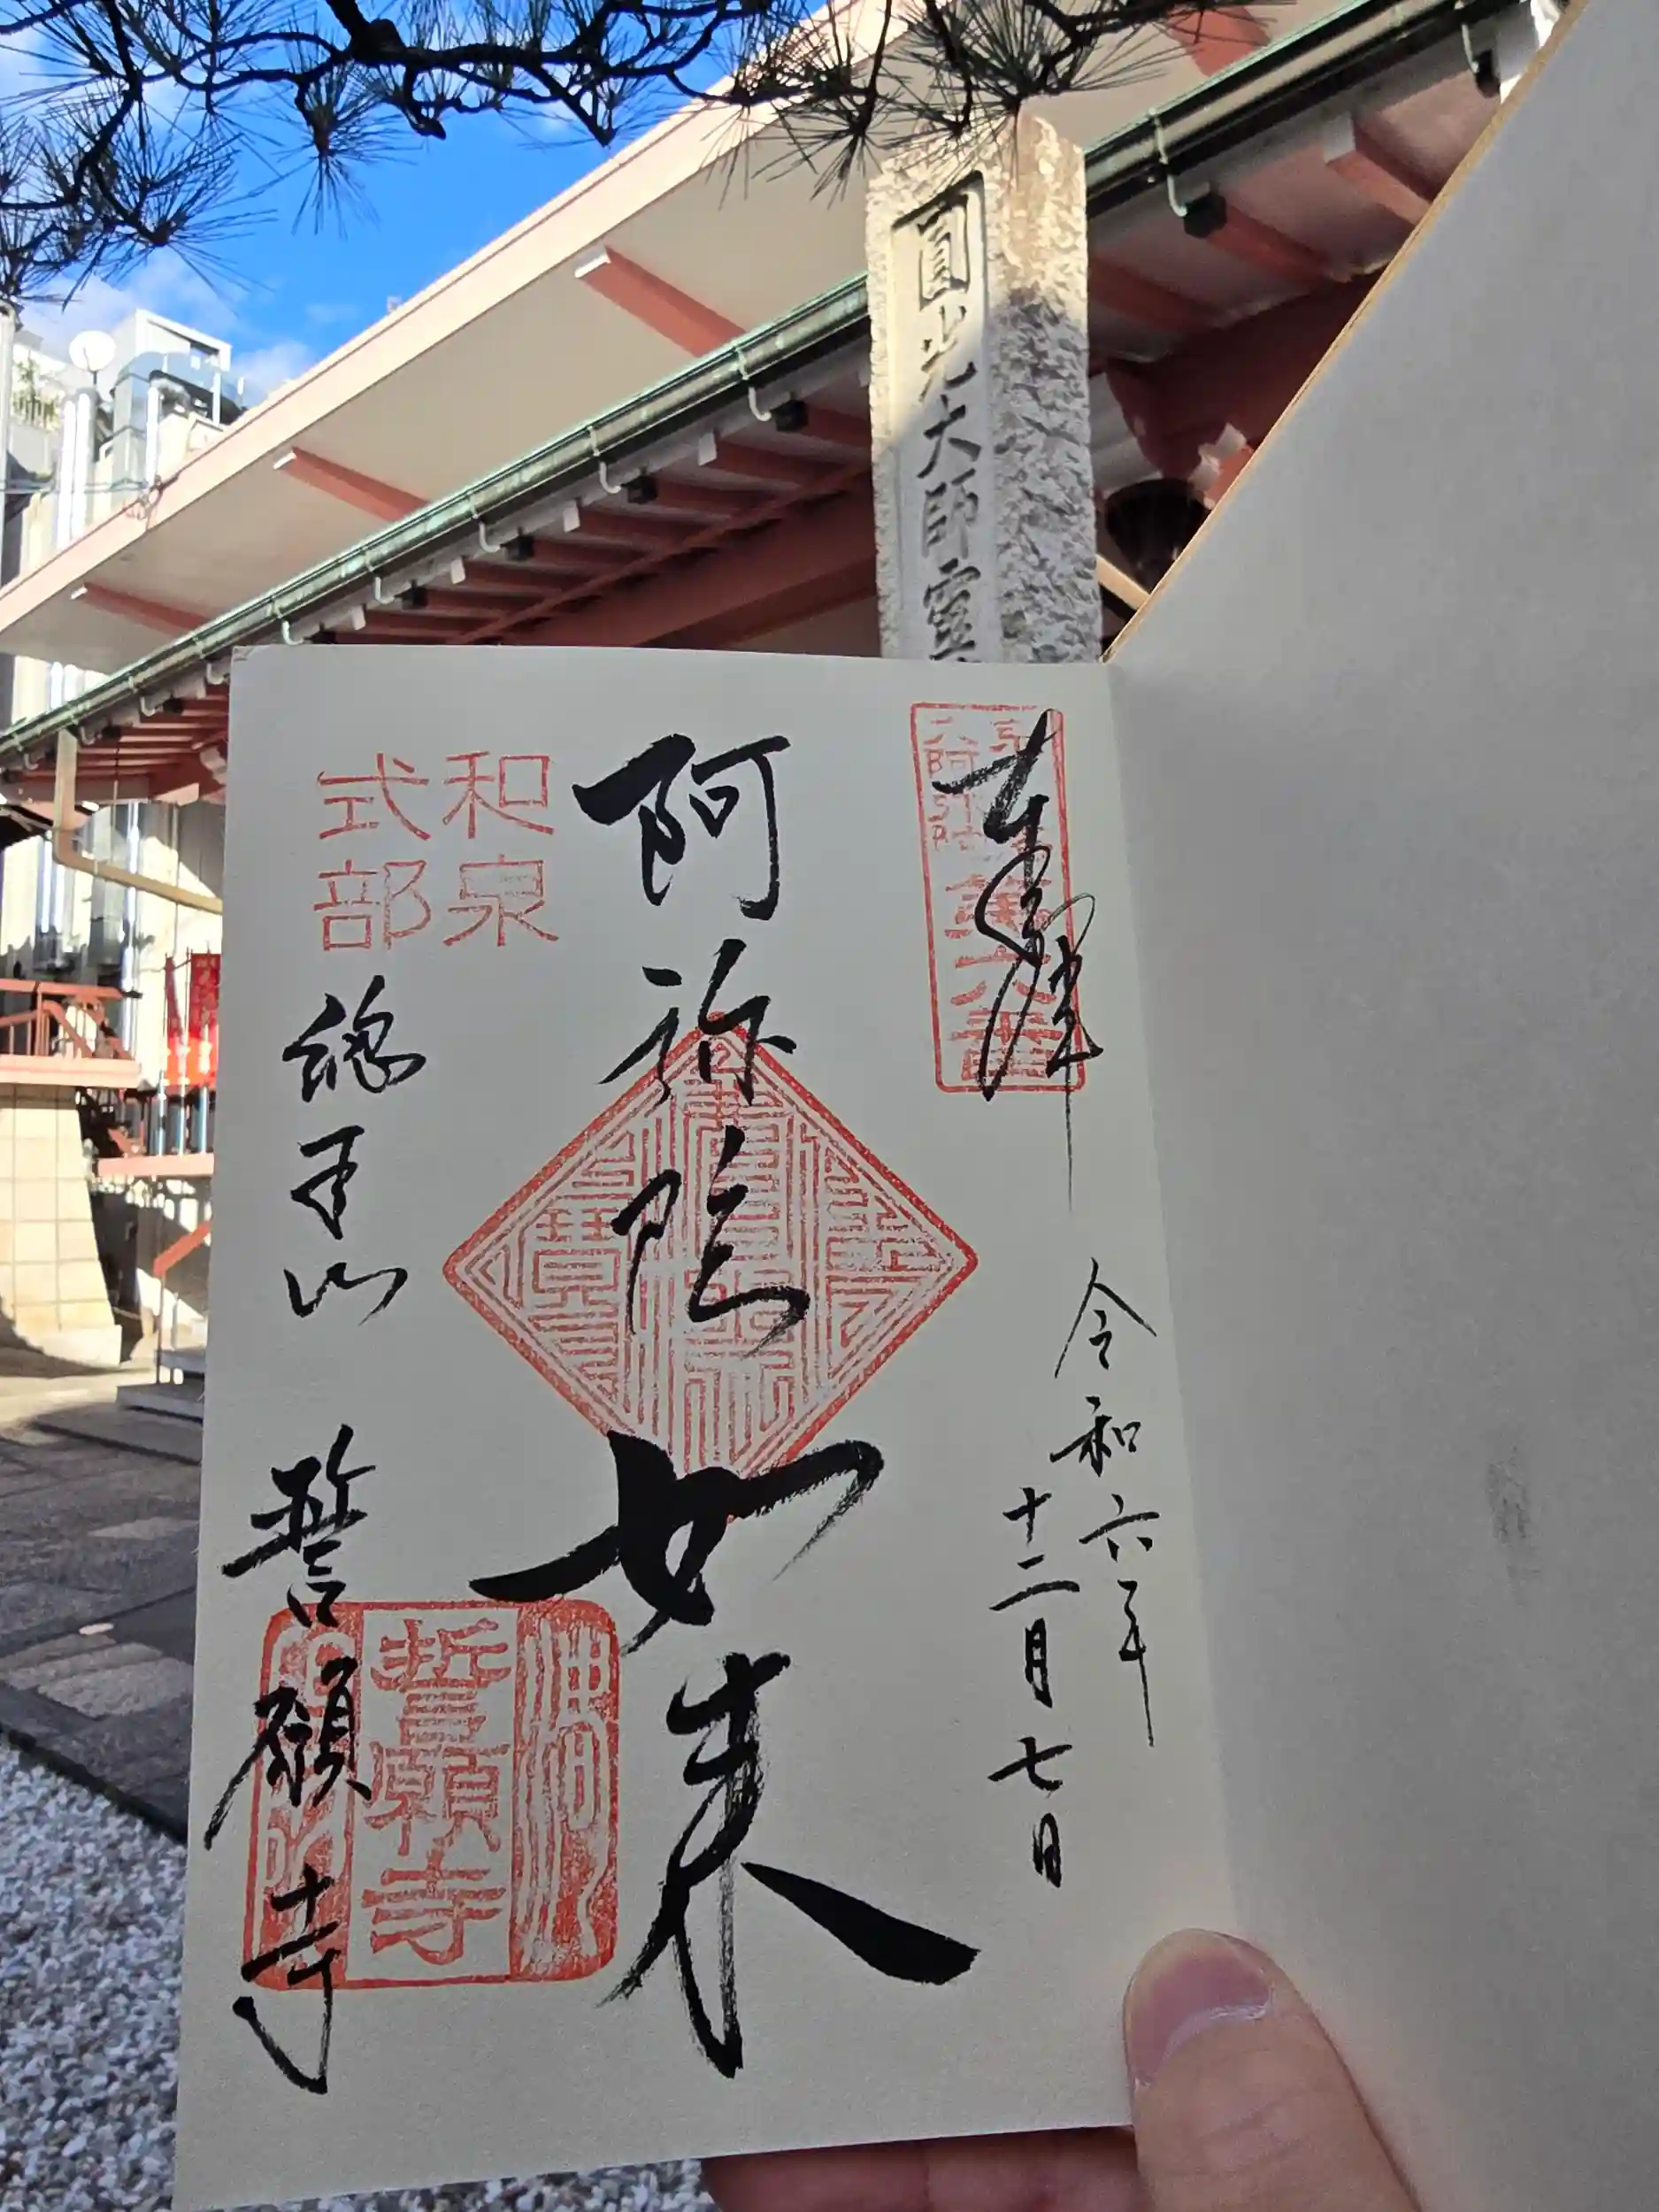 圓光大師靈
奉拝
令和六年
十二月七日
阿弥陀如来
和泉
式部
総本山 誓願寺
誓願寺